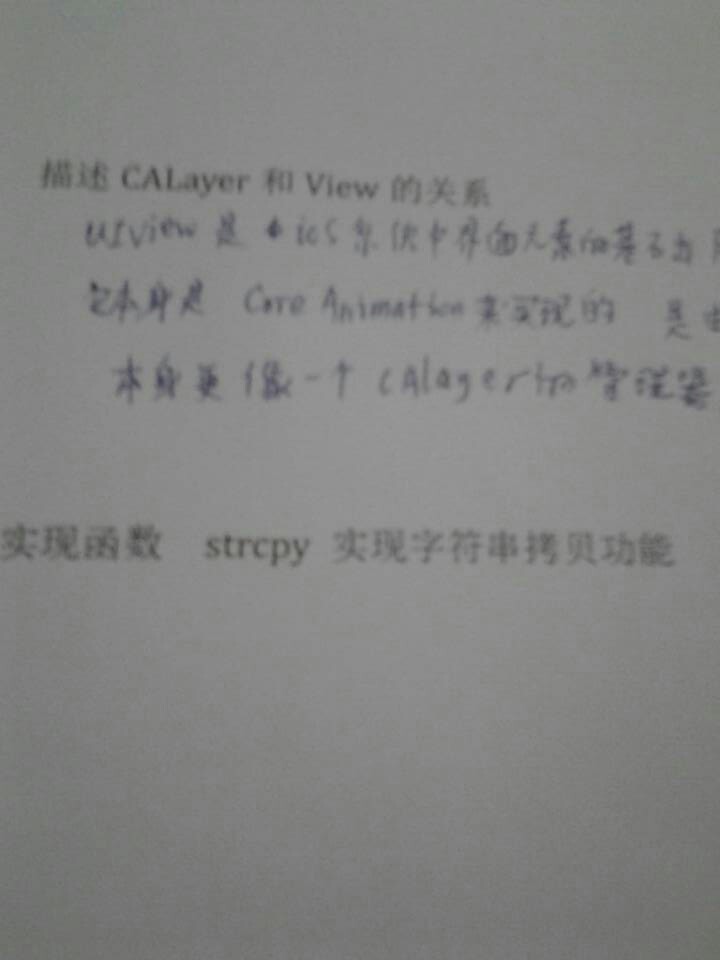 描述 CALayer 和 View 的关系
UIView 是 iOS系统中界面元素的基
它本身是 Core Animation 来实现的 是
本身更像一个 CAlayer 管理
实现函数 strcpy 实现字符串拷贝功能